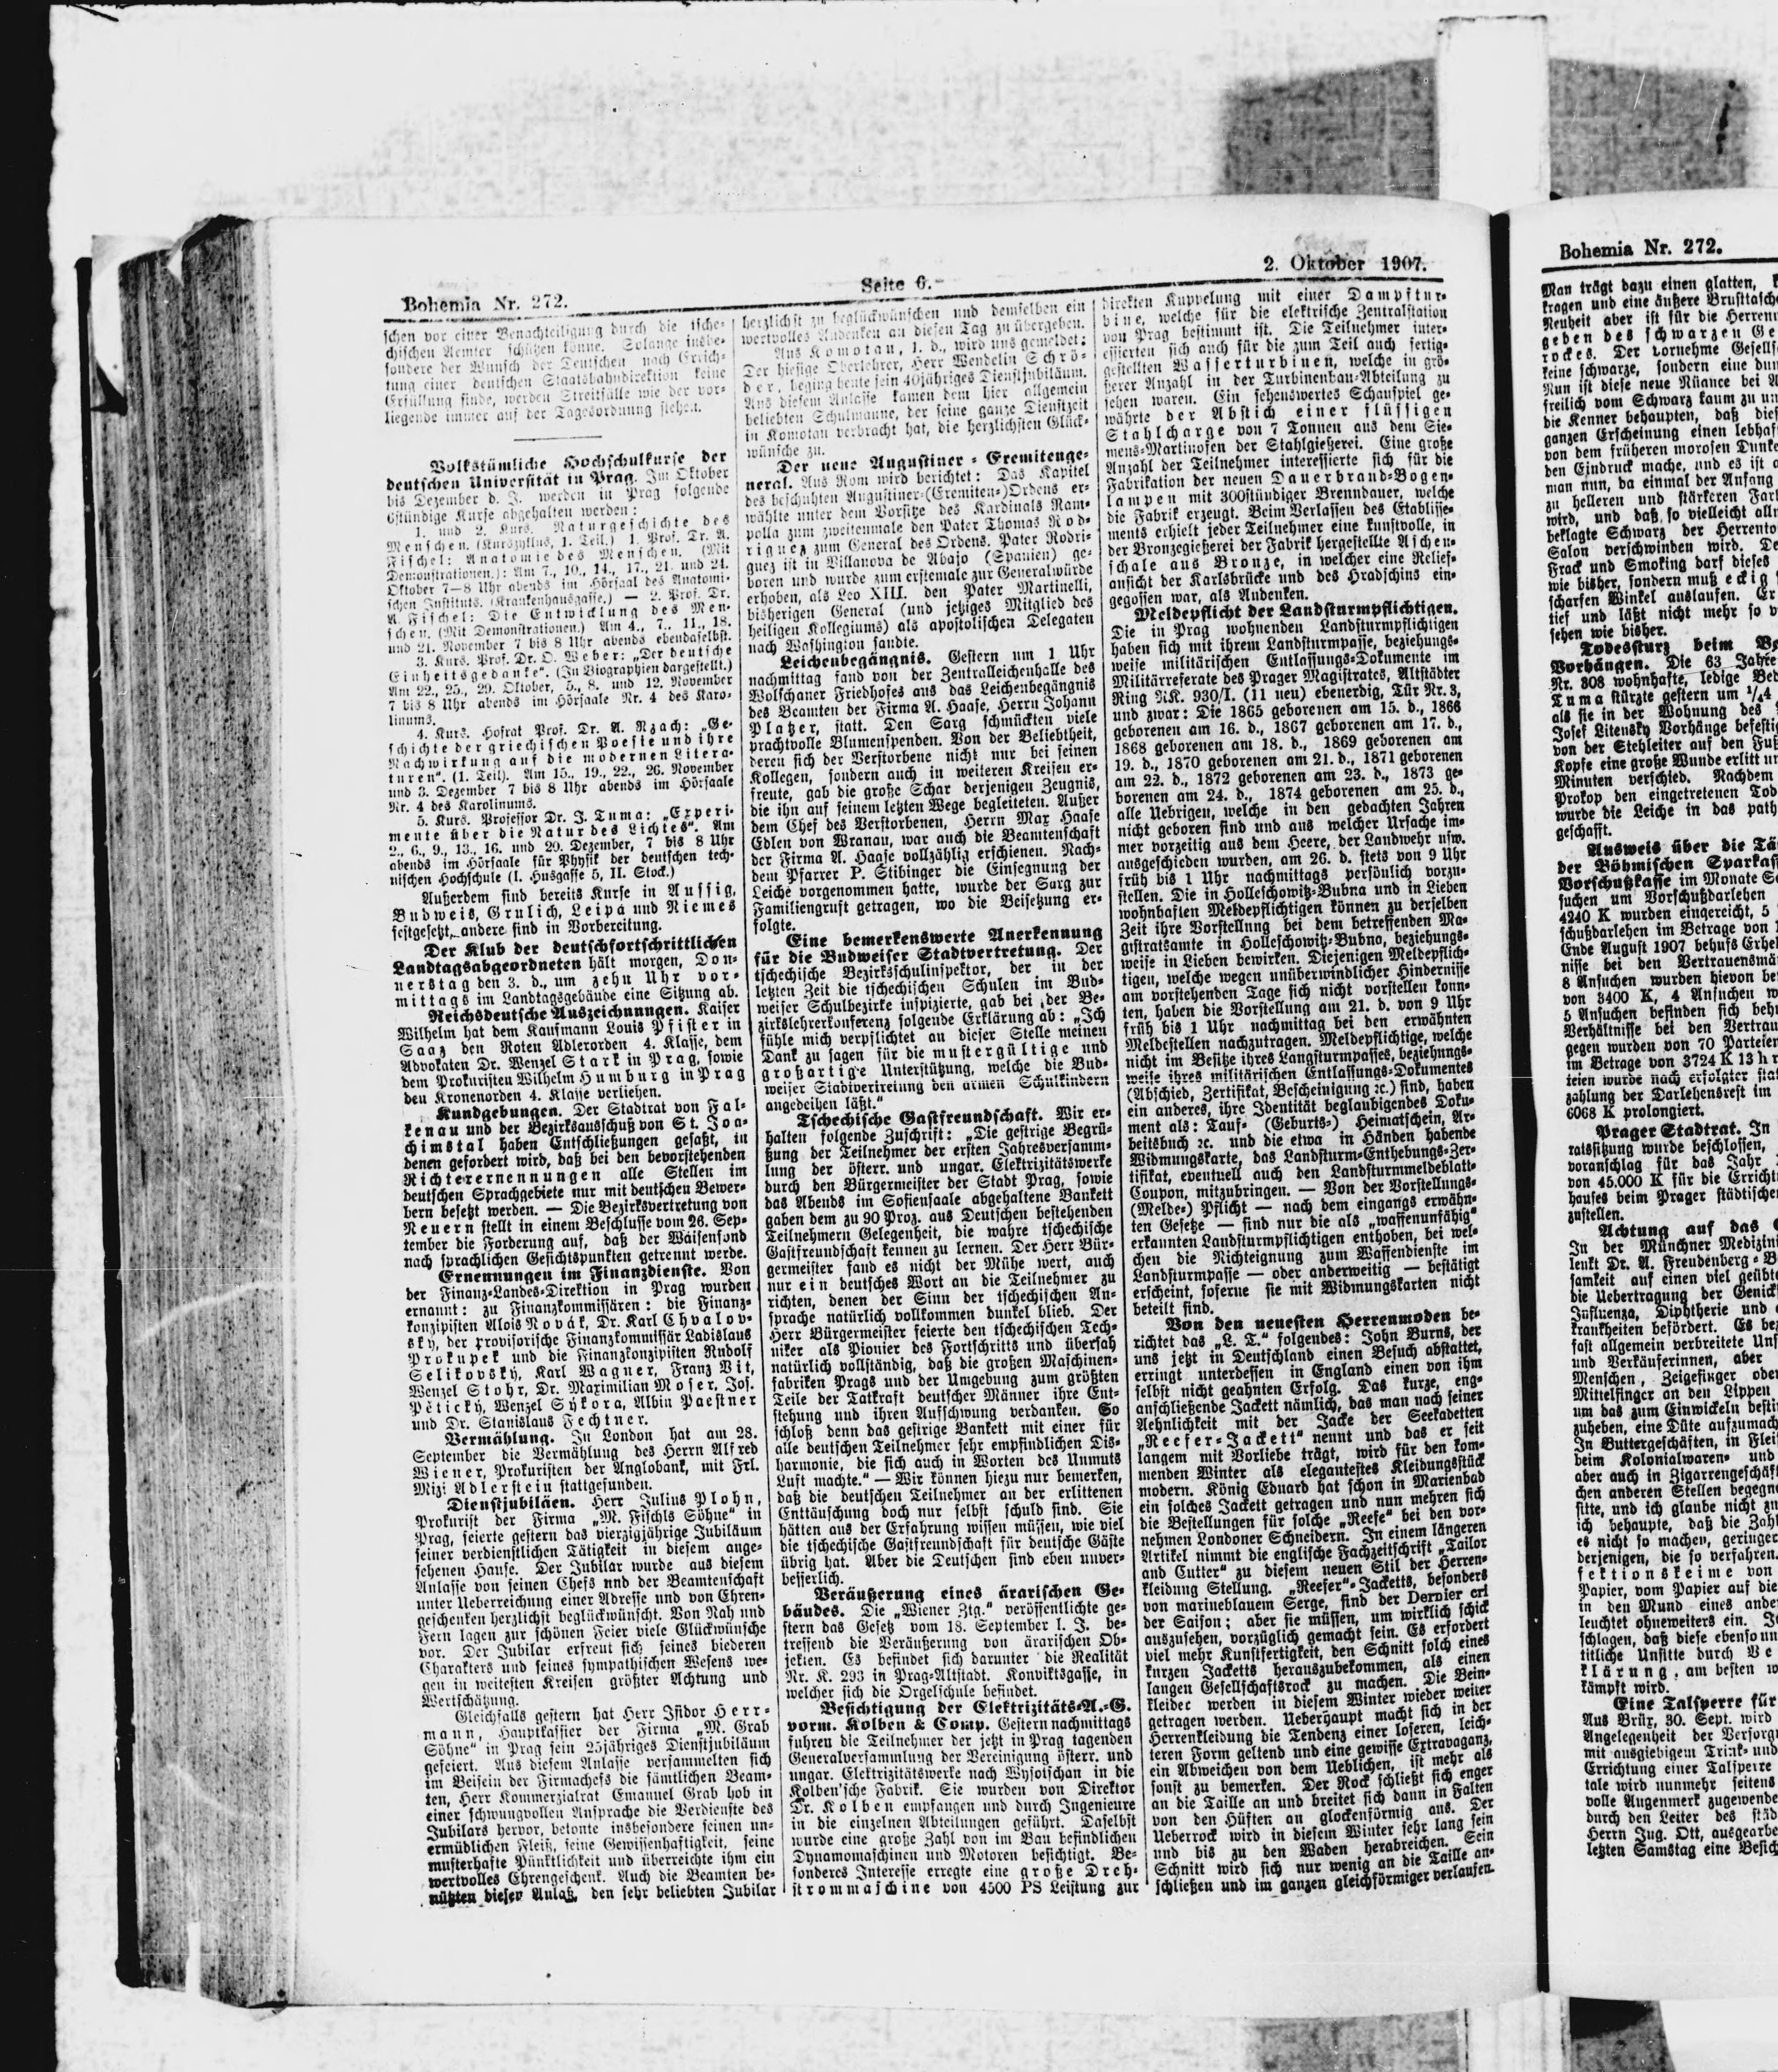 Bohemia Nr. 272.
Seite 6.
2. Oktober 1907.
schen vor einer Benachteiligung durch die tsche-
chischen Aemter schützen könne. Solange insbe-
sondere der Wunsch der Deutschen nach Errich-
tung einer deutschen Staatsbahndirektion keine
Erfüllung finde, werden Streitfälle wie der vor-
liegende immer auf der Tagesordnung stehen.
Volkstümliche Hochschulkurse der
deutschen Universität in Prag. Im Oktober
bis Dezember d. J. werden in Prag folgende
6stündige Kurse abgehalten werden:
1. und 2. Kurs. Naturgeschichte des
Menschen. (Kurszyklus, 1. Teil.) 1. Prof. Dr. A.
Fischel: Anatomie des Menschen. (Mit
Demonstrationen.): Am 7., 10., 14., 17., 21. und 24.
Oktober 7—8 Uhr abends im Hörsaal des Anatomi-
schen Instituts. (Krankenhausgasse.) — 2. Prof. Dr.
A. Fischel: Die Entwicklung des Men-
schen. (Mit Demonstrationen.) Am 4., 7., 11., 18.
und 21. November 7 bis 8 Uhr abends ebendaselbst.
3. Kurs. Prof. Dr. O. Weber: „Der deutsche
Einheitsgedanke“. (In Biographien dargestellt.)
Am 22., 25., 29. Oktober, 5., 8. und 12. November
7 bis 8 Uhr abends im Hörsaale Nr. 4 des Karo-
linums.
4. Kurs. Hofrat Prof. Dr. A. Rzach: „Ge-
schichte der griechischen Poesie und ihre
Nachwirkung auf die modernen Litera-
turen“. (1. Teil). Am 15., 19., 22., 26. November
und 3. Dezember 7 bis 8 Uhr abends im Hörsaale
Nr. 4 des Karolinums.
5. Kurs. Professor Dr. J. Tuma: „Experi-
mente über die Natur des Lichtes“. Am
2., 6., 9., 13., 16. und 20. Dezember, 7 bis 8 Uhr
abends im Hörsaale für Physik der deutschen tech-
nischen Hochschule (I. Husgasse 5, II. Stock.)
Außerdem sind bereits Kurse in Aussig,
Budweis, Grulich, Leipa und Niemes
festgesetzt, andere sind in Vorbereitung.
Der Klub der deutschfortschrittlichen
Landtagsabgeordneten hält morgen, Don-
nerstag den 3. d., um zehn Uhr vor-
mittags im Landtagsgebäude eine Sitzung ab.
Reichsdeutsche Auszeichnungen. Kaiser
Wilhelm hat dem Kaufmann Louis Pfister in
Saaz den Roten Adlerorden 4. Klasse, dem
Advokaten Dr. Wenzel Stark in Prag, sowie
dem Prokuristen Wilhelm Humburg in Prag
den Kronenorden 4. Klasse verliehen.
Kundgebungen. Der Stadtrat von Fal-
kenau und der Bezirksausschuß von St. Joa-
chimstal haben Entschließungen gefaßt, in
denen gefordert wird, daß bei den bevorstehenden
Richterernennungen alle Stellen im
deutschen Sprachgebiete nur mit deutschen Bewer-
bern besetzt werden. — Die Bezirksvertretung von
Neuern stellt in einem Beschlusse vom 26. Sep-
tember die Forderung auf, daß der Waisenfond
nach sprachlichen Gesichtspunkten getrennt werde.
Ernennungen im Finanzdienste. Von
der Finanz-Landes-Direktion in Prag wurden
ernannt: zu Finanzkommissären: die Finanz-
konzipisten Alois Novák, Dr. Karl Chvalov-
sky, der provisorische Finanzkommissär Ladislaus
Prokupek und die Finanzkonzipisten Rudolf
Selikovský, Karl Wagner, Franz Vit,
Wenzel Stohr, Dr. Maximilian Moser, Jos.
Pětický, Wenzel Sýkora, Albin Paestner
und Dr. Stanislaus Fechtner.
Vermählung. In London hat am 28.
September die Vermählung des Herrn Alfred
Wiener, Prokuristen der Anglobank, mit Frl.
Mizi Adlerstein stattgefunden.
Dienstjubiläen. Herr Julius Plohn,
Prokurist der Firma „M. Fischls Söhne“ in
Prag, feierte gestern das vierzigjährige Jubiläum
seiner verdienstlichen Tätigkeit in diesem ange-
sehenen Hause. Der Jubilar wurde aus diesem
Anlasse von seinen Chefs und der Beamtenschaft
unter Ueberreichung einer Adresse und von Ehren-
geschenken herzlichst beglückwünscht. Von Nah und
Fern lagen zur schönen Feier viele Glückwünsche
vor. Der Jubilar erfreut sich seines biederen
Charakters und seines sympathischen Wesens we-
gen in weitesten Kreisen größter Achtung und
Wertschätzung.
Gleichfalls gestern hat Herr Isidor Herr-
mann, Hauptkassier der Firma „M. Grab
Söhne“ in Prag sein 25jähriges Dienstjubiläum
gefeiert. Aus diesem Anlasse versammelten sich
im Beisein der Firmachefs die sämtlichen Beam-
ten, Herr Kommerzialrat Emanuel Grab hob in
einer schwungvollen Ansprache die Verdienste des
Jubilars hervor, betonte insbesondere seinen un-
ermüdlichen Fleiß, seine Gewissenhaftigkeit, seine
musterhafte Pünktlichkeit und überreichte ihm ein
wertvolles Ehrengeschenk. Auch die Beamten be-
nützten diesen Anlaß, den sehr beliebten Jubilar
herzlichst zu beglückwünschen und demselben ein
wertvolles Andenken an diesen Tag zu übergeben.
Aus Komotau, 1. d., wird uns gemeldet:
Der hiesige Oberlehrer, Herr Wendelin Schrö-
der, beging heute sein 40jähriges Dienstjubiläum.
Aus diesem Anlasse kamen dem hier allgemein
beliebten Schulmanne, der seine ganze Dienstzeit
in Komotau verbracht hat, die herzlichsten Glück-
wünsche zu.
Der neue Augustiner-Eremitenge-
neral. Aus Rom wird berichtet: Das Kapitel
des beschuhten Augustiner-(Eremiten-)Ordens er-
wählte unter dem Vorsitze des Kardinals Ram-
polla zum zweitenmale den Pater Thomas Rod-
riguez zum General des Ordens. Pater Rodri-
guez ist in Villanova de Abajo (Spanien) ge-
boren und wurde zum erstemale zur Generalwürde
erhoben, als Leo XIII. den Pater Martinelli,
bisherigen General (und jetziges Mitglied des
heiligen Kollegiums) als apostolischen Delegaten
nach Washington sandte.
Leichenbegängnis. Gestern um 1 Uhr
nachmittag fand von der Zentralleichenhalle des
Wolschaner Friedhofes aus das Leichenbegängnis
des Beamten der Firma A. Haase, Herrn Johann
Platzer, statt. Den Sarg schmückten viele
prachtvolle Blumenspenden. Von der Beliebtheit,
deren sich der Verstorbene nicht nur bei seinen
Kollegen, sondern auch in weiteren Kreisen er-
freute, gab die große Schar derjenigen Zeugnis,
die ihn auf seinem letzten Wege begleiteten. Außer
dem Chef des Verstorbenen, Herrn Max Haase
Edlen von Wranau, war auch die Beamtenschaft
der Firma A. Haase vollzählig erschienen. Nach-
dem Pfarrer P. Stibinger die Einsegnung der
Leiche vorgenommen hatte, wurde der Sarg zur
Familiengruft getragen, wo die Beisetzung er-
folgte.
Eine bemerkenswerte Anerkennung
für die Budweiser Stadtvertretung. Der
tschechische Bezirksschulinspektor, der in der
letzten Zeit die tschechischen Schulen im Bud-
weiser Schulbezirke inspizierte, gab bei der Be-
zirkslehrerkonferenz folgende Erklärung ab: „Ich
fühle mich verpflichtet an dieser Stelle meinen
Dank zu sagen für die mustergültige und
großartige Unterstützung, welche die Bud-
weiser Stadtvertretung den armen Schulkindern
angedeihen läßt.“
Tschechische Gastfreundschaft. Wir er-
halten folgende Zuschrift: „Die gestrige Begrü-
ßung der Teilnehmer der ersten Jahresversamm-
lung der österr. und ungar. Elektrizitätswerke
durch den Bürgermeister der Stadt Prag, sowie
das Abends im Sofiensaale abgehaltene Bankett
gaben dem zu 90 Proz. aus Deutschen bestehenden
Teilnehmern Gelegenheit, die wahre tschechische
Gastfreundschaft kennen zu lernen. Der Herr Bür-
germeister fand es nicht der Mühe wert, auch
nur ein deutsches Wort an die Teilnehmer zu
richten, denen der Sinn der tschechischen An-
sprache natürlich vollkommen dunkel blieb. Der
Herr Bürgermeister feierte den tschechischen Tech-
niker als Pionier des Fortschritts und übersah
natürlich vollständig, daß die großen Maschinen-
fabriken Prags und der Umgebung zum größten
Teile der Tatkraft deutscher Männer ihre Ent-
stehung und ihren Aufschwung verdanken. So
schloß denn das gestrige Bankett mit einer für
alle deutschen Teilnehmer sehr empfindlichen Dis-
harmonie, die sich auch in Worten des Unmuts
Luft machte.“ — Wir können hiezu nur bemerken,
daß die deutschen Teilnehmer an der erlittenen
Enttäuschung doch nur selbst schuld sind. Sie
hätten aus der Erfahrung wissen müssen, wie viel
die tschechische Gastfreundschaft für deutsche Gäste
übrig hat. Aber die Deutschen sind eben unver-
besserlich.
Veräußerung eines ärarischen Ge-
bäudes. Die „Wiener Ztg.“ veröffentlichte ge-
stern das Gesetz vom 18. September l. J. be-
treffend die Veräußerung von ärarischen Ob-
jekten. Es befindet sich darunter die Realität
Nr. K. 293 in Prag-Altstadt. Konviktsgasse, in
welcher sich die Orgelschule befindet.
Besichtigung der Elektrizitäts-A.-G.
vorm. Kolben & Comp. Gestern nachmittags
fuhren die Teilnehmer der jetzt in Prag tagenden
Generalversammlung der Vereinigung österr. und
ungar. Elektrizitätswerke nach Wysotschan in die
Kolben'sche Fabrik. Sie wurden von Direktor
Dr. Kolben empfangen und durch Ingenieure
in die einzelnen Abteilungen geführt. Daselbst
wurde eine große Zahl von im Bau befindlichen
Dynamomaschinen und Motoren besichtigt. Be-
sonderes Interesse erregte eine große Dreh-
strommaschine von 4500 PS Leistung zur
direkten Kuppelung mit einer Dampftur-
bine, welche für die elektrische Zentralstation
von Prag bestimmt ist. Die Teilnehmer inter-
essierten sich auch für die zum Teil auch fertig-
gestellten Wasserturbinen, welche in grö-
ßerer Anzahl in der Turbinenbau-Abteilung zu
sehen waren. Ein sehenswertes Schauspiel ge-
währte der Abstich einer flüssigen
Stahlcharge von 7 Tonnen aus dem Sie-
mens-Martinofen der Stahlgießerei. Eine große
Anzahl der Teilnehmer interessierte sich für die
Fabrikation der neuen Dauerbrand-Bogen-
lampen mit 300stündiger Brenndauer, welche
die Fabrik erzeugt. Beim Verlassen des Etablisse-
ments erhielt jeder Teilnehmer eine kunstvolle, in
der Bronzegießerei der Fabrik hergestellte Aschen-
schale aus Bronze, in welcher eine Relief-
ansicht der Karlsbrücke und des Hradschins ein-
gegossen war, als Andenken.
Meldepflicht der Landsturmpflichtigen.
Die in Prag wohnenden Landsturmpflichtigen
haben sich mit ihrem Landsturmpasse, beziehungs-
weise militärischen Entlassungs-Dokumente im
Militärreferate des Prager Magistrates, Altstädter
Ring NK. 930/I. (11 neu) ebenerdig, Tür Nr. 3,
und zwar: Die 1865 geborenen am 15. d., 1866
geborenen am 16. d., 1867 geborenen am 17. d.,
1868 geborenen am 18. d., 1869 geborenen am
19. d., 1870 geborenen am 21. d., 1871 geborenen
am 22. d., 1872 geborenen am 23. d., 1873 ge-
borenen am 24. d., 1874 geborenen am 25. d.,
alle Uebrigen, welche in den gedachten Jahren
nicht geboren sind und aus welcher Ursache im-
mer vorzeitig aus dem Heere, der Landwehr usw.
ausgeschieden wurden, am 26. d. stets von 9 Uhr
früh bis 1 Uhr nachmittags persönlich vorzu-
stellen. Die in Holleschowitz-Bubna und in Lieben
wohnhaften Meldepflichtigen können zu derselben
Zeit ihre Vorstellung bei dem betreffenden Ma-
gistratsamte in Holleschowitz-Bubna, beziehungs-
weise in Lieben bewirken. Diejenigen Meldepflich-
tigen, welche wegen unüberwindlicher Hindernisse
am vorstehenden Tage sich nicht vorstellen konn-
ten, haben die Vorstellung am 21. d. von 9 Uhr
früh bis 1 Uhr nachmittag bei den erwähnten
Meldestellen nachzutragen. Meldepflichtige, welche
nicht im Besitze ihres Langsturmpasses, beziehungs-
weise ihres militärischen Entlassungs-Dokumentes
(Abschied, Zertifikat, Bescheinigung ꝛc.) sind, haben
ein anderes, ihre Identität beglaubigendes Doku-
ment als: Tauf- (Geburts-) Heimatschein, Ar-
beitsbuch ꝛc. und die etwa in Händen habende
Widmungskarte, das Landsturm-Enthebungs-Zer-
tifikat, eventuell auch den Landsturmmeldeblatt-
Coupon, mitzubringen. — Von der Vorstellungs-
(Melde-) Pflicht — nach dem eingangs erwähn-
ten Gesetze — sind nur die als „waffenunfähig“
erkannten Landsturmpflichtigen enthoben, bei wel-
chen die Nichteignung zum Waffendienste im
Landsturmpasse — oder anderweitig — bestätigt
erscheint, soferne sie mit Widmungskarten nicht
beteilt sind.
Von den neuesten Herrenmoden be-
richtet das „L. T.“ folgendes: John Burns, der
uns jetzt in Deutschland einen Besuch abstattet,
erringt unterdessen in England einen von ihm
selbst nicht geahnten Erfolg. Das kurze, eng-
anschließende Jackett nämlich, das man nach seiner
Aehnlichkeit mit der Jacke der Seekadetten
„Reefer-Jackett“ nennt und das er seit
langem mit Vorliebe trägt, wird für den kom-
menden Winter als elegantestes Kleidungsstück
modern. König Eduard hat schon in Marienbad
ein solches Jackett getragen und nun mehren sich
die Bestellungen für solche „Reefe“ bei den vor-
nehmen Londoner Schneidern. In einem längeren
Artikel nimmt die englische Fachzeitschrift „Tailor
and Cutter“ zu diesem neuen Stil der Herren-
kleidung Stellung. „Reefer“-Jacketts, besonders
von marineblauem Serge, sind der Dernier cri
der Saison; aber sie müssen, um wirklich schick
auszusehen, vorzüglich gemacht sein. Es erfordert
viel mehr Kunstfertigkeit, den Schnitt solch eines
kurzen Jacketts herauszubekommen, als einen
langen Gesellschaftsrock zu machen. Die Bein-
kleider werden in diesem Winter wieder weiter
getragen werden. Ueberhaupt macht sich in der
Herrenkleidung die Tendenz einer loseren, leich-
teren Form geltend und eine gewisse Extravaganz,
ein Abweichen von dem Ueblichen, ist mehr als
sonst zu bemerken. Der Rock schließt sich enger
an die Taille an und breitet sich dann in Falten
von den Hüften an glockenförmig aus. Der
Ueberrock wird in diesem Winter sehr lang sein
und bis zu den Waden herabreichen. Sein
Schnitt wird sich nur wenig an die Taille an-
schließen und im ganzen gleichförmiger verlaufen.
Bohemia Nr. 272.
Man trägt dazu einen glatten,
kragen und eine äußere Brusttasche
Neuheit aber ist für die Herren
geben des schwarzen Ge
rockes. Der vornehme Gesells
keine schwarze, sondern eine dun
Nun ist diese neue Nüance bei A
freilich vom Schwarz kaum zu un
die Kenner behaupten, daß dies
ganzen Erscheinung einen lebhaf
von dem früheren morosen Dunke
den Eindruck mache, und es ist a
man nun, da einmal der Anfang
zu helleren und stärkeren Far
wird, und daß so vielleicht all
beklagte Schwarz der Herrento
Salon verschwinden wird. De
Frack und Smoking darf dieses
wie bisher, sondern muß eckig
scharfen Winkel auslaufen. Er
tief und läßt nicht mehr so v
sehen wie bisher.
Todessturz beim
Vorhängen. Die 63 Jahre
Nr. 308 wohnhafte, ledige Bed
Tuma stürzte gestern um ¼4
als sie in der Wohnung des
Josef Litensky Vorhänge befestig
von der Stehleiter auf den Fuß
Kopfe eine große Wunde erlitt un
Minuten verschied. Nachdem
Prokop den eingetretenen Tod
wurde die Leiche in das path
geschafft.
Ausweis über die Tä
der Böhmischen Sparkass
Vorschußkasse im Monate Se
suchen um Vorschußdarlehen
4240 K wurden eingereicht, 5
schußdarlehen im Betrage von
Ende August 1907 behufs Erhe
nisse bei den Vertrauensmä
8 Ansuchen wurden hievon be
von 3400 K, 4 Ansuchen w
5 Ansuchen befinden sich beh
Verhältnisse bei den Vertrau
gegen wurden von 70 Parteien
im Betrage von 3724 K 13 h r
teien wurde nach erfolgter stat
zahlung der Darlehensrest im
6068 K prolongiert.
Prager Stadtrat. In
ratssitzung wurde beschlossen,
voranschlag für das Jahr
von 45.000 K für die Errich
hauses beim Prager städtische
zustellen.
Achtung auf das
In der Münchner Medizin
lenkt Dr. A. Freudenberg-B
samkeit auf einen viel geübte
die Uebertragung der Genick
Influenza, Diphtherie und
krankheiten befördert. Es be
fast allgemein verbreitete Uns
und Verkäuferinnen, aber
Menschen, Zeigefinger ode
Mittelfinger an den Lippen
um das zum Einwickeln besti
zuheben, eine Düte aufzumach
In Buttergeschäften, in Flei
beim Kolonialwaren- und
aber auch in Zigarrengeschäft
chen anderen Stellen begegne
sitte, und ich glaube nicht zu
ich behaupte, daß die Zahl
es nicht so machen, geringer
derjenigen, die so verfahren.
fektionskeime von
Papier, vom Papier auf die
in den Mund eines ande
leuchtet ohneweiters ein. J
schlagen, daß diese ebenso un
titliche Unsitte durch Be
klärung, am besten w
kämpft wird.
Eine Talsperre für
Aus Brüx, 30. Sept. wird
Angelegenheit der Versorg
mit ausgiebigem Trink- und
Errichtung einer Talsperre
tale wird nunmehr seitens
volle Augenmerk zugewende
durch den Leiter des städ
Herrn Ing. Ott, ausgearbe
letzten Samstag eine Besich